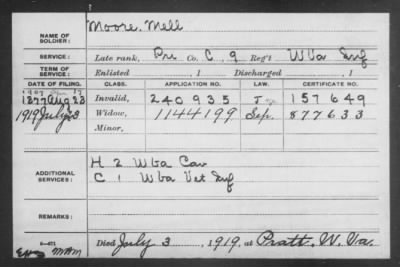 Moore, Mell
NAME OF SOLDIER:
SERVICE: Late rank, Pri Co. C, 9 Reg't W Va Inf
TERM OF SERVICE: Enlisted , 1 Discharged , 1
DATE OF FILING. CLASS. APPLICATION NO. LAW. CERTIFICATE NO.
1877 Aug 23 Invalid, 240935 157649
1919 July 23 Widow, 1144199 Sep. 877633
Minor,
ADDITIONAL SERVICES:
H 2 W Va Cav
C 1 W Va Vet Inf
REMARKS:
Died July 3, 1919, at Pratt, W. Va.